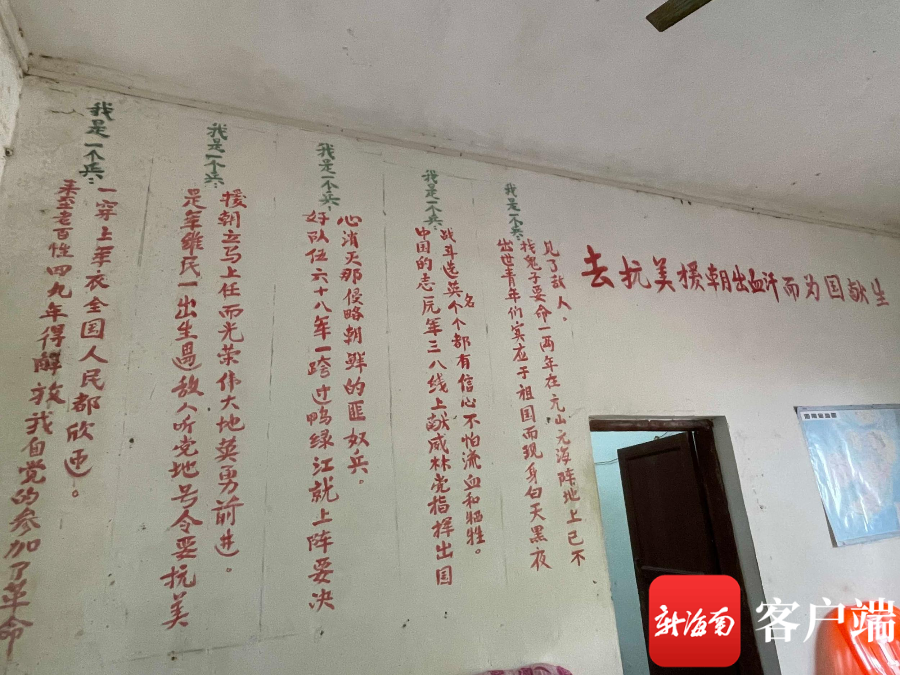 我是一个兵:
来至老百性四九年得解放我自党的参加了革命
一穿上军衣全国人民都欣迎。
我是一个兵:
是军维民一出生遇敌人听党地号令要抗美
援朝立马上任而光荣伟大地英勇前进。
我是一个兵:
好队伍六十八军一跨过鸭绿江就上阵要决
心消灭那侵略朝鲜的匪奴兵。
我是一个兵:
中国的志愿军三八线上献威林党指挥出国
战斗选英名个个都有信心不怕流血和牺牲。
我是一个兵:
出世青年们实应于祖国而现身白天黑夜
找鬼子要命一两年在元山元海阵地上已不
见了敌人。
去抗美援朝出血汗而为国献生
新海南 客户端